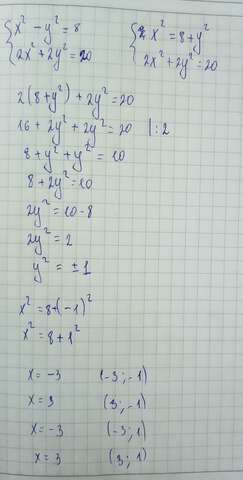 {x² - y² = 8
2x² + 2y² = 20
{x² = 8 + y²
2x² + 2y² = 20
2(8+y²) + 2y² = 20
16 + 2y² + 2y² = 20 |:2
8 + y² + y² = 10
8 + 2y² = 10
2y² = 10 - 8
2y² = 2
y² = ±1
x² = 8+(-1)²
x² = 8 + 1²
x = -3 (-3; -1)
x = 3 (3; -1)
x = -3 (-3; 1)
x = 3 (3; 1)